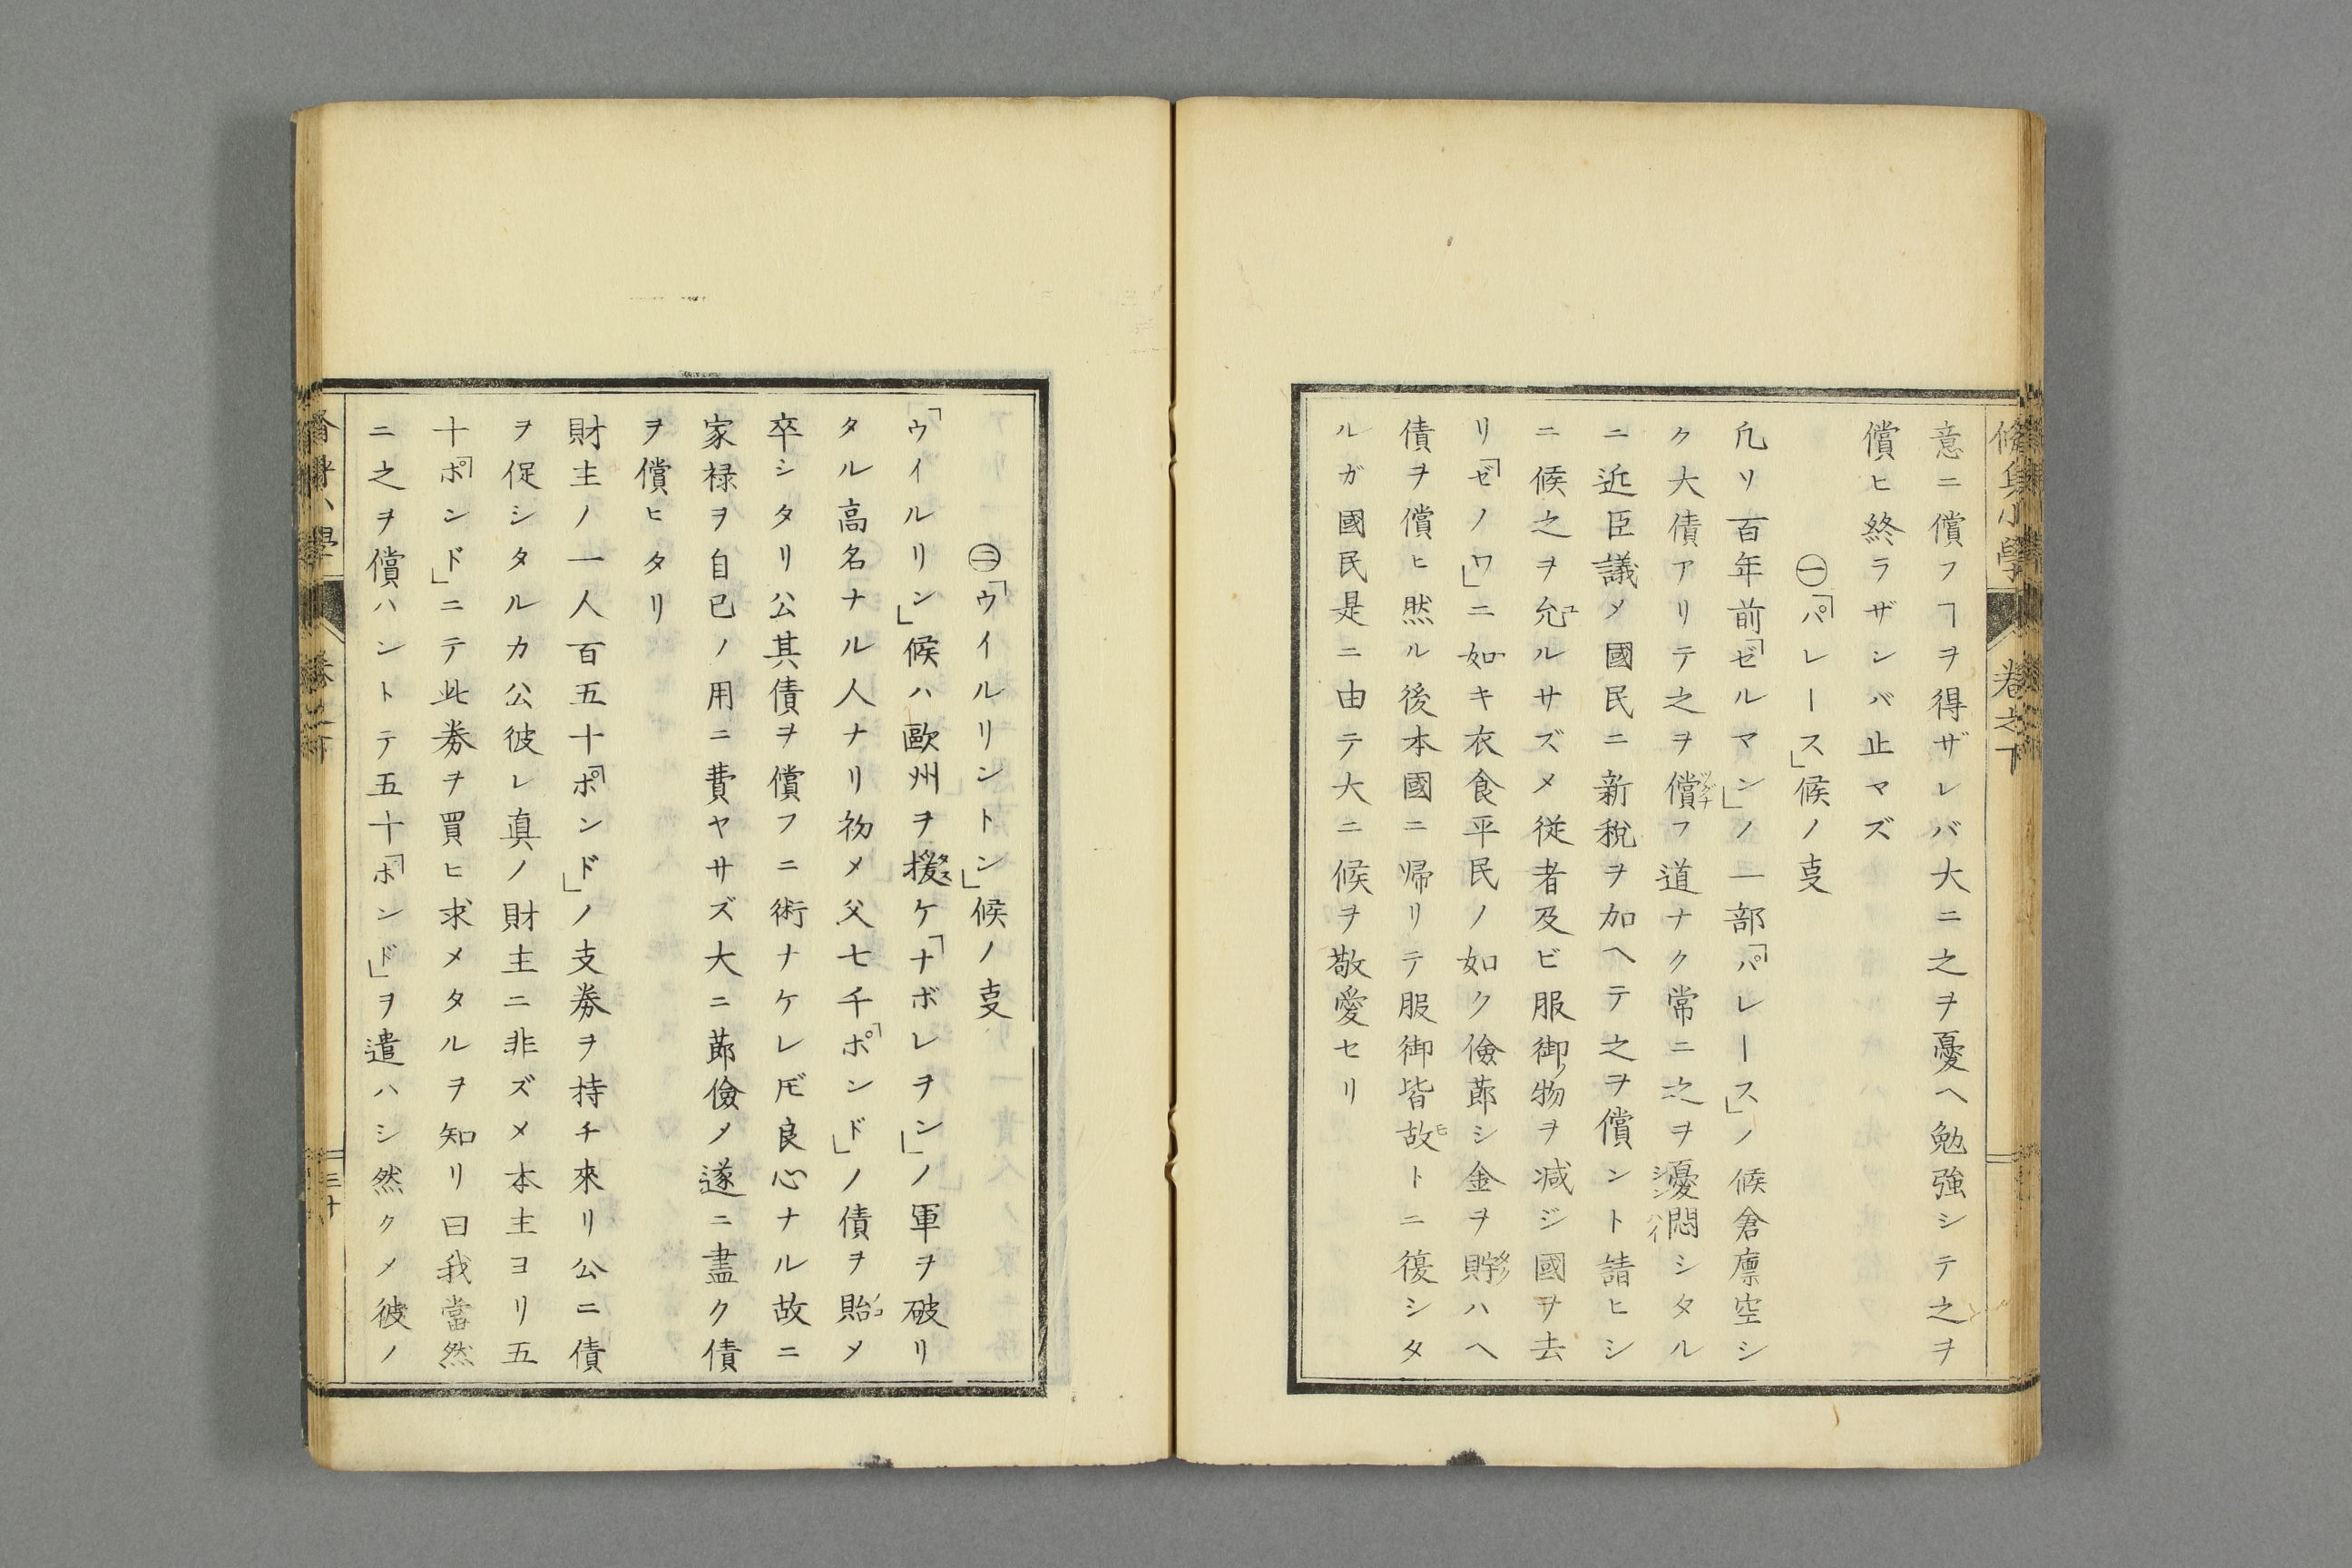 脩身小學 卷之下
意ニ償フヿヲ得ザレバ大ニ之ヲ憂ヘ勉強シテ之ヲ
償ヒ終ラザンバ止マズ
㊀「パレース」候ノ𫝆
凡ソ百年前「ゼルマン」ノ一部「パレース」ノ候倉廩空シ
ク大債アリテ之ヲ償フ道ナク常ニ之ヲ憂悶シタル
ニ近臣議メ國民ニ新税ヲ加ヘテ之ヲ償ント請ヒシ
ニ候之ヲ允ルサズメ従者及ビ服御物ヲ減ジ國ヲ去
リ「ゼノワ」ニ如キ衣食平民ノ如ク儉莭シ金ヲ貯ハヘ
債ヲ償ヒ然ル後本國ニ帰リテ服御皆故トニ復シタ
ルガ國民是ニ由テ大ニ候ヲ敬愛セリ
㊁「ウイルリントン」候ノ𫝆
「ウイルリン」候ハ歐州ヲ援ケ「ナボレヲン」ノ軍ヲ破リ
タル高名ナル人ナリ初メ父七千「ポンド」ノ債ヲ貽メ
卒シタリ公其債ヲ償フニ術ナケレ𪜈良心ナル故ニ
家禄ヲ自已ノ用ニ費ヤサズ大ニ莭儉メ遂ニ盡ク債
ヲ償ヒタリ
財主ノ一人百五十「ポンド」ノ支券ヲ持チ來リ公ニ債
ヲ促シタルカ公彼レ真ノ財主ニ非ズメ本主ヨリ五
十「ポンド」ニテ此券ヲ買ヒ求メタルヲ知リ曰我當然
ニ之ヲ償ハントテ五十「ポンド」ヲ遣ハシ然クメ彼ノ
三十